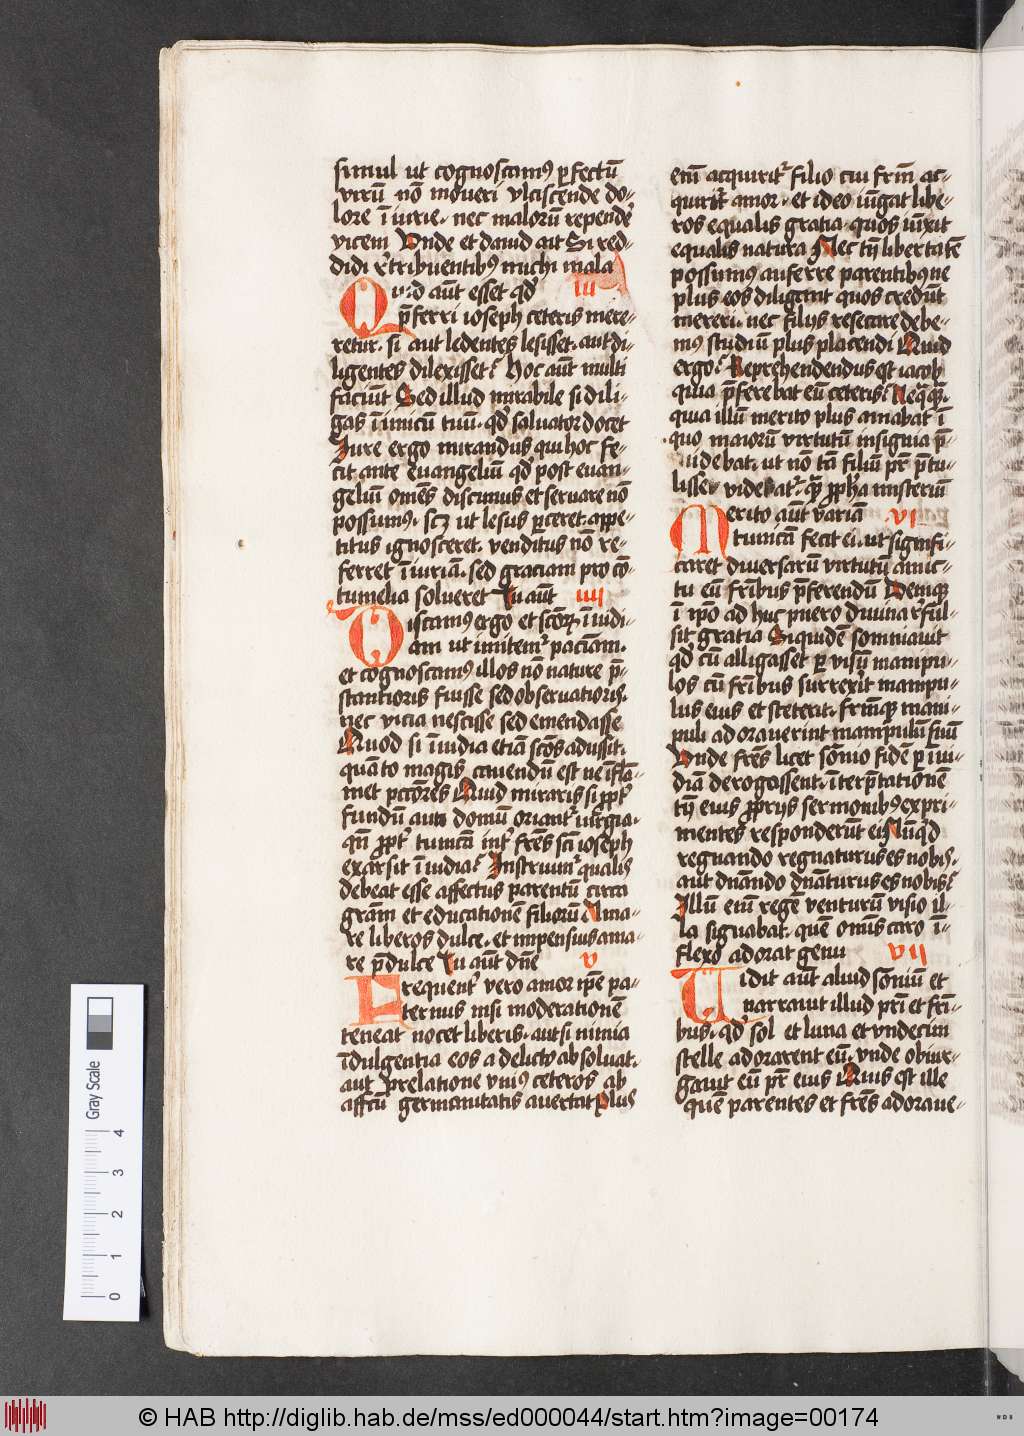 simul ut cognoscamꝰ ꝑfectū
virū nō moueri vlciscende do-
lore īiurie. nec malorū rependē
vicem Vnde et dauid ait Si red-
didi rͤtribuentibꝰ michi mala
Quid aūt esset qd̓ III
p̄ferri ioseph ceteris mere-
retur. si aut ledentes lesisset. aut di-
ligentes dilexisset? Hoc aūt multi
faciunt Sed illud mirabile si dili-
gas īimicū tuū. qd̓ saluator docet
Iure ergo mirandus qui hoc fe-
cit ante euangeliū qd̓ post euan-
geliū om̄es discimus et seruare nō
possumus. scꝫ ut lesus ꝑceret. appe-
titus ignosceret. venditus nō re-
ferret īiuriā. sed graciam pro cō-
tumelia solueret Tu aūt IIII
Discamꝰ ergo et scōꝝ īuidi-
am ut imitemͬ paciam.
et cognoscamꝰ illos nō nature p̄-
stantioris fuisse sed obseruatioris.
nec vicia nescisse sed emendasse
Quod si īuidia etiā scōs adussit.
quāto magis cauendū est ne īflā-
met pctōres Quid miraris si ꝓptͬ
fundū aut domū oriantͬ iurgia.
qn̄ ꝓptͬ tunicā intͬ fr̄es sci ioseph
exarsit īuidia? Instruimͬ qualis
debeat esse affectus parentū circa
grām et educationē filiorū Ama-
re liberos dulce. et impensius ama-
re p̄dulce Tu aūt dn̄e V
Frequentͬ vero amor ip̄e pa-
ternus nisi moderationē
teneat nocet liberis. aut si nimia
īdulgentia eos a delicto absoluat.
aut prelatione vniꝰ ceteros ab
affectū germanitatis auertat Plus
em̄ acquiritͬ filio cui fr̄m ac-
quiritͬ amor. et ideo iūgat libe-
ros equalis gratia quos iūxit
equalis natura Nec tn̄ libertatē
possumus auferre parentibꝰ ne
plus eos diligant quos credūt
mereri. nec filijs resecare debe-
mꝰ studiū plus placendi Quid
ergo? Reprehendendus ē iacob
quia p̄ferebat eū ceteris? Neqͣqͣ.
quia illū merito plus amabat ī
quo maiorū virtutū insignia p̄-
uidebat. ut nō tā filiū pr̄ p̄tu-
lisse videatͬ. qͣ ꝓph̄a misteriū
Merito aūt variā VI
tunicā fecit ei. ut signifi-
caret diuersarū virtutū amic-
tu eū fr̄ibus p̄ferendū Deniqꝫ
ī ip̄o adhuc puero diuina rͤful-
sit gratia Siquidē somniauit
qd̓ cū alligasset ꝑ visū manipu-
los cū fr̄ibus surrexit manipu-
lus eius et steterit. fr̄mqꝫ mani-
puli adorauerint manipulū suū
Vnde fr̄es licet sōnio fidē ꝑ īui-
diā derogassent. īterp̄tationē
tn̄ eius ꝓprijs sermonibꝰ expri-
mentes responderūt ei Nūqd
regnando regnaturus es nobis.
aut dn̄ando dn̄aturus es nobis?
Illū em̄ regē venturū visio il-
la signabat. quē omīs caro ī-
flexo adorat genu VII
Uidit aūt aliud sōniū et
narrauit illud pr̄i et fr̄i-
bus. qd̓ sol et luna et vndecim
stelle adorarent eū. vnde obiur-
gauit eū pr̄ eius Quis est ille
quē parentes et fr̄es adoraue-
Gray Scale
0 1 2 3 4
© HAB http://diglib.hab.de/mss/ed000044/start.htm?image=00174